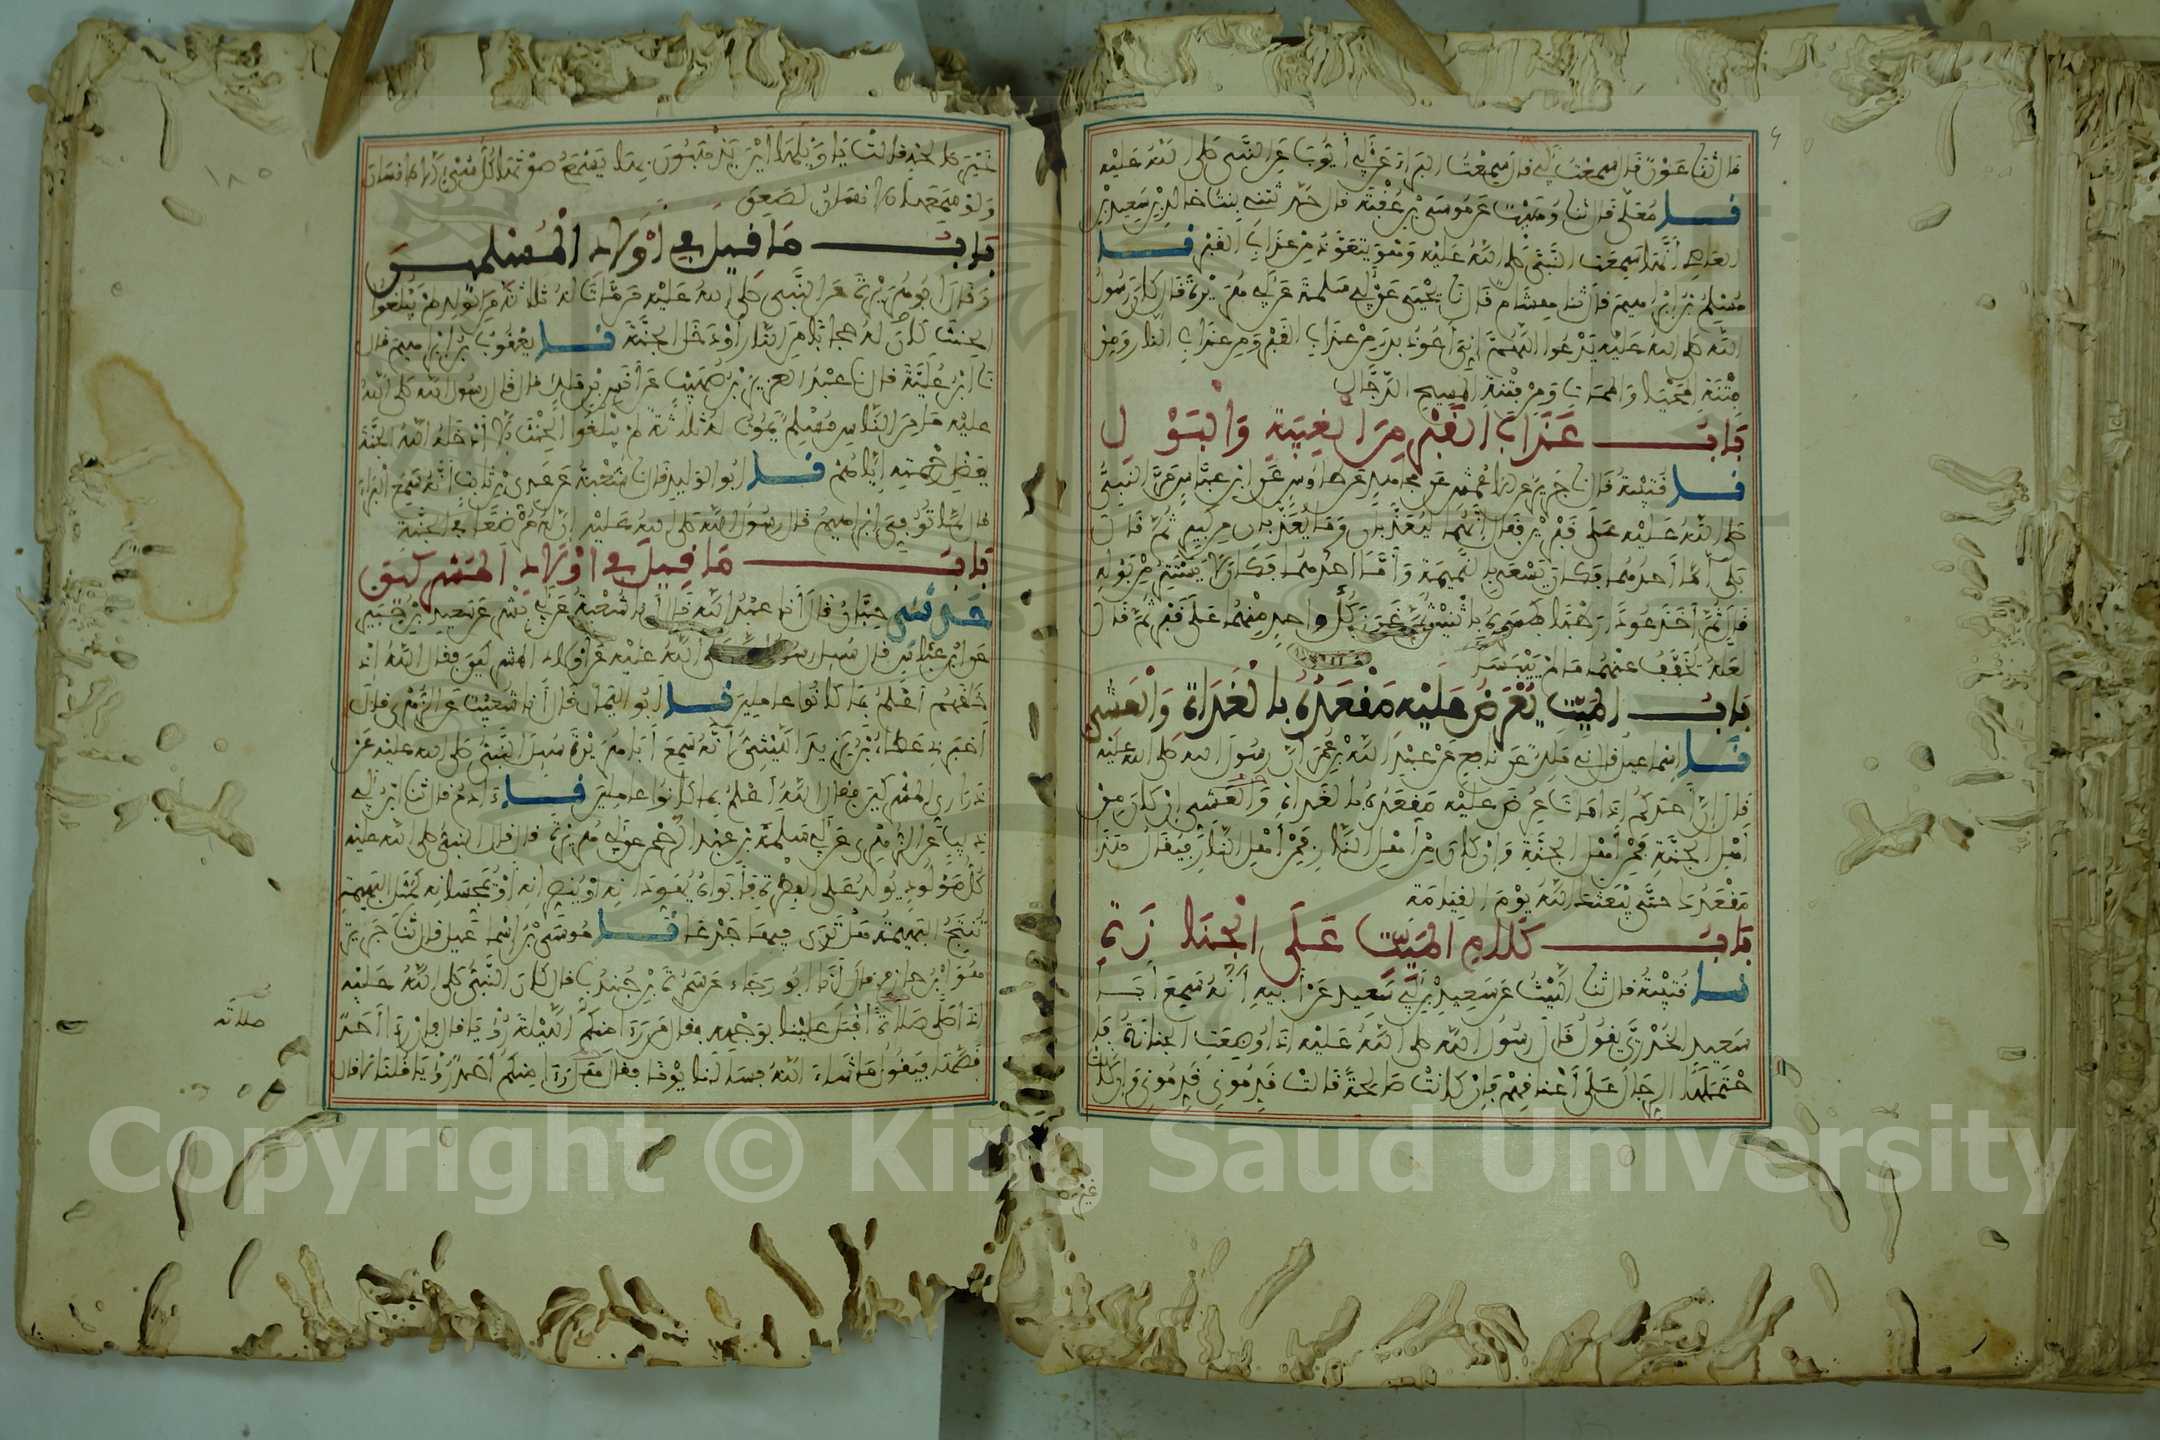 قال ثنا عون قال سمعت أبي قال سمعت البراء عن أبي أيوب عن النبي صلى الله عليه
نا معلى قال ثنا وهيب عن موسى بن عقبة قال حدثتني بنت خالد بن سعيد بن
العاص أنها سمعت النبي صلى الله عليه وهو يتعوذ من عذاب القبر نا
مسلم بن إبراهيم قال ثنا هشام قال نا يحيى عن أبي سلمة عن أبي هريرة قال كان رسول
الله صلى الله عليه يدعوا اللهم إني أعوذ بك من عذاب القبر ومن عذاب النار ومن
فتنة المحيا والممات ومن فتنة المسيح الدجال
باب عذاب القبر من الغيبة والبول
نا قتيبة قال نا جرير عن الأعمش عن مجاهد عن طاوس عن ابن عباس مر النبي
صلى الله عليه على قبرين فقال إنهما ليعذبان وما يعذبان من كبير ثم قال
بلى أما أحدهما فكان يسعى بالنميمة وأما أحدهما فكان لا يستتر من بوله
قال ثم أخذ عودا رطبا فكسره باثنتين ثم غرز كل واحد منهما على قبر ثم قال
لعله يخفف عنهما ما لم ييبسا
باب الميت يعرض عليه مقعده بالغداة والعشي
نا إسماعيل قال ني ملك عن نافع عن عبد الله بن عمر أن رسول الله صلى الله عليه
قال إن أحدكم إذا مات عرض عليه مقعده بالغداة والعشي إن كان من
أهل الجنة فمن أهل الجنة وإن كان من أهل النار فمن أهل النار فيقال هذا
مقعدك حتى يبعثك الله يوم القيامة
باب كلام الميت على الجنازة
نا قتيبة قال ثنا الليث عن سعيد بن أبي سعيد عن أبيه أنه سمع أبا
سعيد الخدري يقول قال رسول الله صلى الله عليه إذا وضعت الجنازة فا
حتملها الرجال على أعناقهم فإن كانت صالحة قالت قدموني قدموني وإن كانت
غير
غير صالحة قالت يا ويلها أين يذهبون بها يسمع صوتها كل شيء إلا الإنسان
ولو سمعها الإنسان لصعق
باب ما قيل في أولاد المسلمين
وقال أبو هريرة عن النبي صلى الله عليه من مات له ثلاثة من الولد لم يبلغوا
الحنث كان له حجابا من النار أو دخل الجنة نا يعقوب بن إبراهيم قال
نا ابن علية قال نا عبد العزيز بن صهيب عن أنس بن ملك قال قال رسول الله صلى الله
عليه ما من الناس مسلم يموت له ثلاثة لم يبلغوا الحنث إلا أدخله الله الجنة
بفضل رحمته إياهم نا أبو الوليد قال نا شعبة عن عدي بن ثابت أنه سمع البراء
قال لما توفي إبراهيم قال رسول الله صلى الله عليه إن له مرضعا في الجنة
باب ما قيل في أولاد المشركين
حدثني حبان قال أنا عبد الله قال أنا شعبة عن أبي بشر عن سعيد بن جبير
عن ابن عباس قال سئل رسول الله صلى الله عليه عن أولاد المشركين فقال الله إذ
خلقهم أعلم بما كانوا عاملين نا أبو اليمان قال أنا شعيب عن الزهري قال
أخبرني عطاء بن يزيد الليثي أنه سمع أبا هريرة سئل النبي صلى الله عليه عن
ذراري المشركين فقال الله أعلم بما كانوا عاملين نا آدم قال ثنا ابن أبي
ذيب عن الزهري عن أبي سلمة بن عبد الرحمن عن أبي هريرة قال قال النبي صلى الله عليه
كل مولود يولد على الفطرة فأبواه يهودانه أو ينصرانه أو يمجسانه كمثل البهيمة
تنتج البهيمة هل ترى فيها جدعا نا موسى بن إسماعيل قال ثنا جرير
هو ابن حازم قال أنا أبو رجاء عن سمرة بن جندب قال كان النبي صلى الله عليه
إذا صلى صلاة أقبل علينا بوجهه فقال من رءا منكم الليلة رؤيا قال فإن رءا أحد
قصها فيقول ما شاء الله فسألنا يوما فقال هل رءا منكم أحد رؤيا قلنا لا قال
صلاته
١٨٥
Copyright © King Saud University